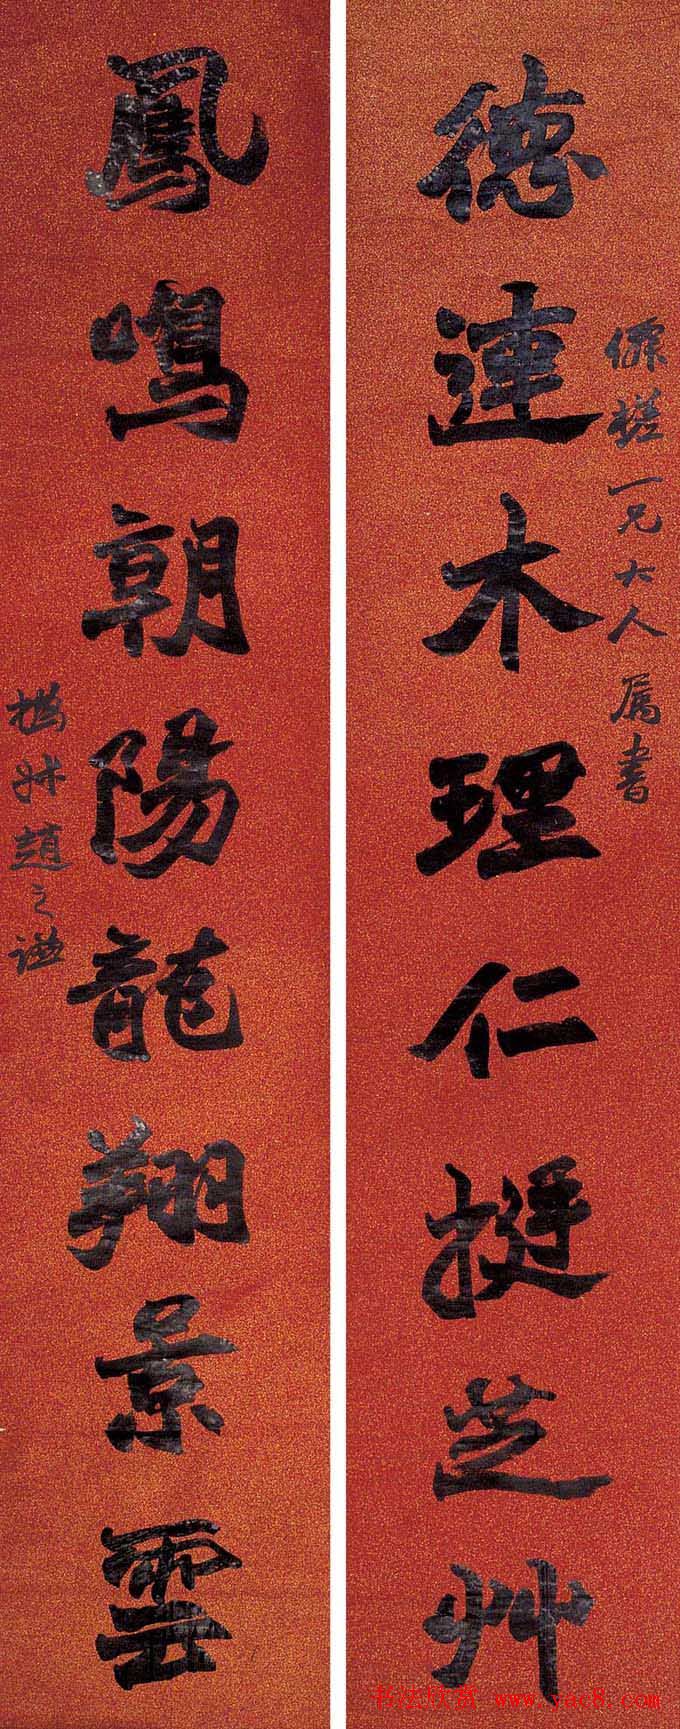 德連木理仁挺芝艸
一兄大人属書
鳳鳴朝陽龍翔景雲
撝叔趙之謙
书法欣赏 www.yac8.com